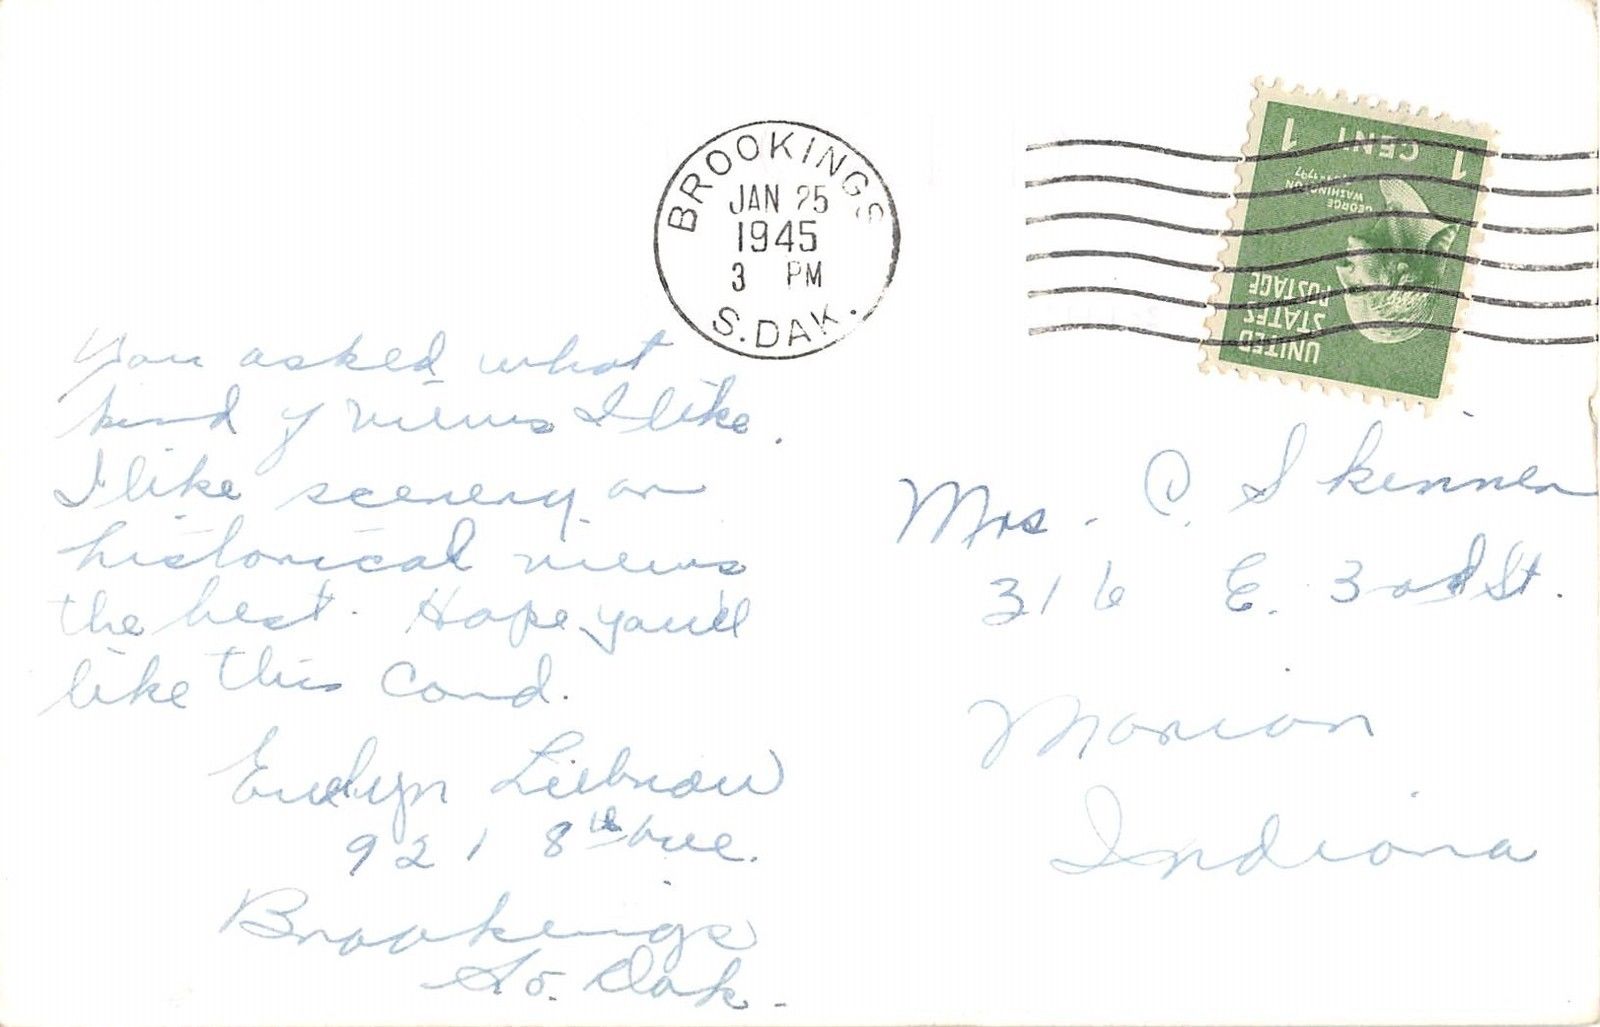 BROOKINGS
JAN 25
1945
3 PM
S. DAK.
1 CENT 1
GEORGE
WASHINGTON
UNITED
STATES
POSTAGE
You asked what
kind of views I like.
I like scenery or
historical views
the best. Hope you'll
like this card.
Evelyn Liebnow
921 8th Ave.
Brookings
So. Dak.
Mrs. C. Skinner
316 E. 3rd St.
Marion
Indiana